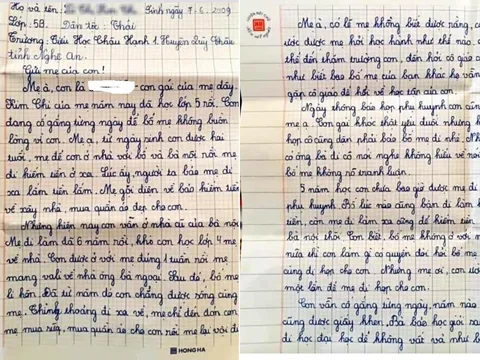 Họ và tên: Sinh ngày 7.6.2009
Lớp: 5B. Dân tộc: Thái
Trường Tiểu Học Châu Hạnh 1 Huyện Quỳ Châu
tỉnh Nghệ An.
Gửi mẹ của con!
Mẹ à, con là con gái của mẹ đây.
Kim Chi của mẹ năm nay đã học lớp 5 rồi. Con
đang cố gắng từng ngày để bố mẹ không buồn
lòng vì con. Mẹ ạ, từ ngày sinh con được hai
tuổi, mẹ để con ở nhà với bố và bà nội rồi mẹ
đi kiếm tiền ở xa. Lúc ấy, người ta bảo mẹ đi
xa lắm tiền lắm. Mẹ gọi điện về bảo kiếm tiền
về xây nhà, mua quần áo đẹp cho con.
Nhưng hiện nay con vẫn ở nhà cũ của bà nội
Mẹ đi làm đã 6 năm rồi, khi con học lớp 4 mẹ
về nhà. Con được ở với mẹ đúng 1 tuần rồi mẹ
mang vali về nhà ông bà ngoại. Sau đó, bố mẹ
li hôn. Đã từ năm đó con chẳng được sống cùng
mẹ. Thỉnh thoảng đi xa về, mẹ chỉ đến đón con
mẹ mua sữa, mua quần áo cho con rồi mẹ lại vội đi
HONG HA
Mẹ à, có lẽ mẹ không biết được rằng, c
ước được mẹ hỏi học hành như thế nào.
thế đến thăm trường con, đến hỏi cô giáo c
như biết bao bố mẹ của bạn khác họ vẫn
gặp cô giáo để hỏi về học tập của con.
Ngày thông báo họp phụ huynh con cũng
mẹ ạ. Con gái khóc thật yếu đuối nhưng h
họp cô cũng dặn phải bảo bố mẹ đi nhé. Nh
có ông bà đi cô nói nghe không hiểu về nói
bố mẹ không nó tranh luận.
5 năm học con chưa bao giờ được mẹ đi
phụ huynh. Bố lúc nào cũng bận đi làm k
tiền, còn mẹ đi làm xa cũng để kiếm tiền
bà nói thôi. Con biết, bố mẹ không ở với n
nữa thì con làm gì có quyền đòi hỏi bố mẹ
cùng đi họp cho con. Nhưng mẹ ơi, con ước
một lần để mẹ đi họp cho con.
Con vẫn cố gắng từng ngày, năm nào
cũng được giấy khen. Bà bảo học giỏi sa
đi học đại học để không vất vả như b